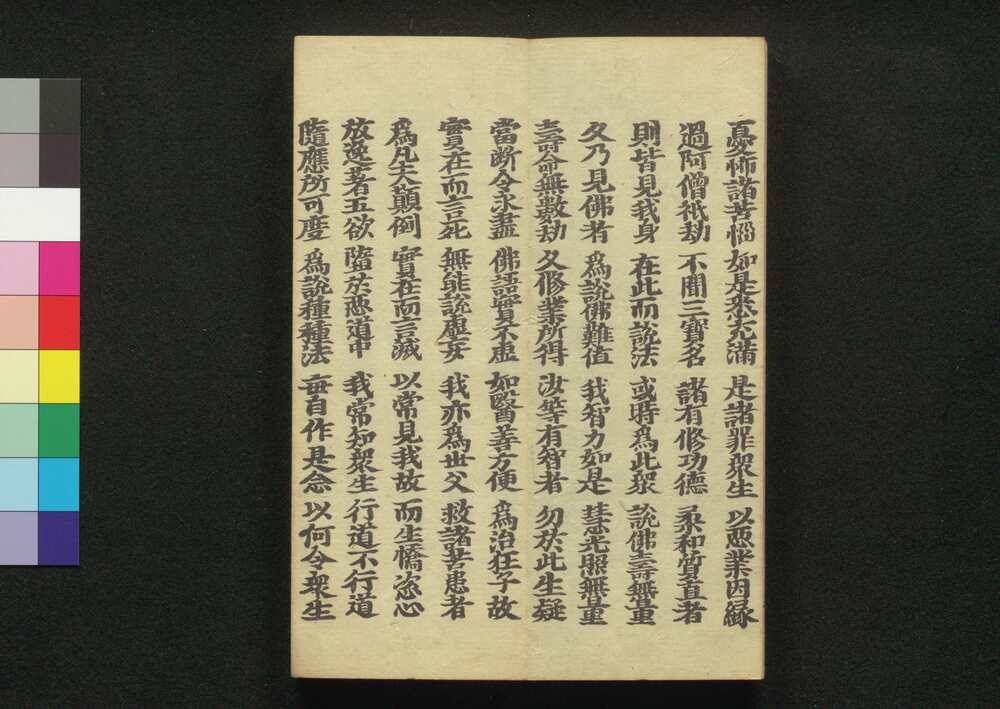 憂怖諸苦惱 如是悉充滿 是諸罪衆生 以惡業因緣
過阿僧祇劫 不聞三寶名 諸有修功德 柔和質直者
則皆見我身 在此而說法 或時爲此衆 說佛壽無量
久乃見佛者 爲說佛難值 我智力如是 慧光照無量
壽命無數劫 久修業所得 汝等有智者 勿於此生疑
當斷令永盡 佛語實不虛 如醫善方便 爲治狂子故
實在而言死 無能說虛妄 我亦爲世父 救諸苦患者
爲凡夫顛倒 實在而言滅 以常見我故 而生憍恣心
放逸著五欲 墮於惡道中 我常知衆生 行道不行道
隨應所可度 爲說種種法 每自作是念 以何令衆生